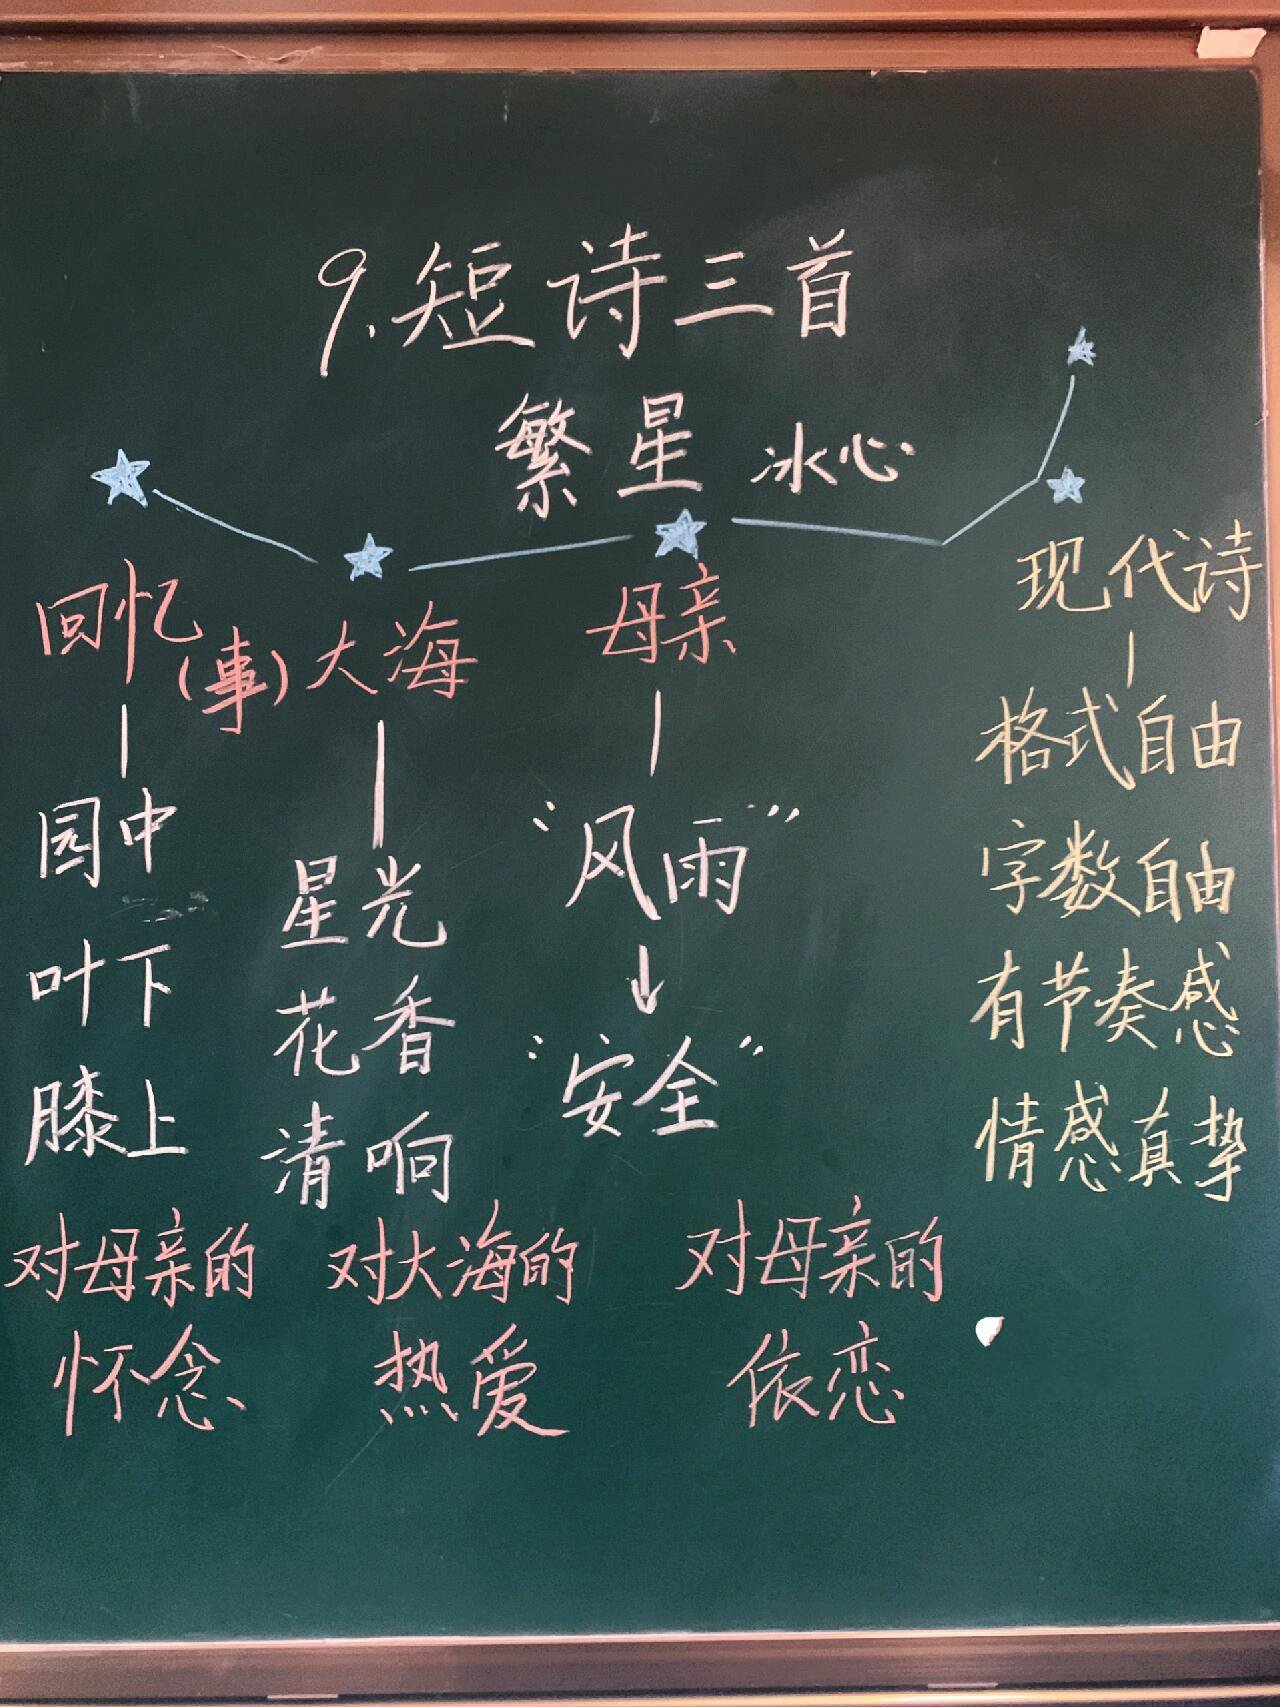 9.短诗三首
繁星 冰心
回忆(事)
园中
叶下
膝上
对母亲的
怀念
大海
星光
花香
清响
对大海的
热爱
母亲
“风雨”
↓
“安全”
对母亲的
依恋
现代诗
格式自由
字数自由
有节奏感
情感真挚